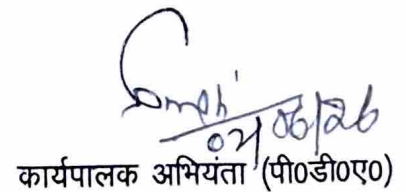 04/06/26
कार्यपालक अभियंता (पी0डी0ए0)